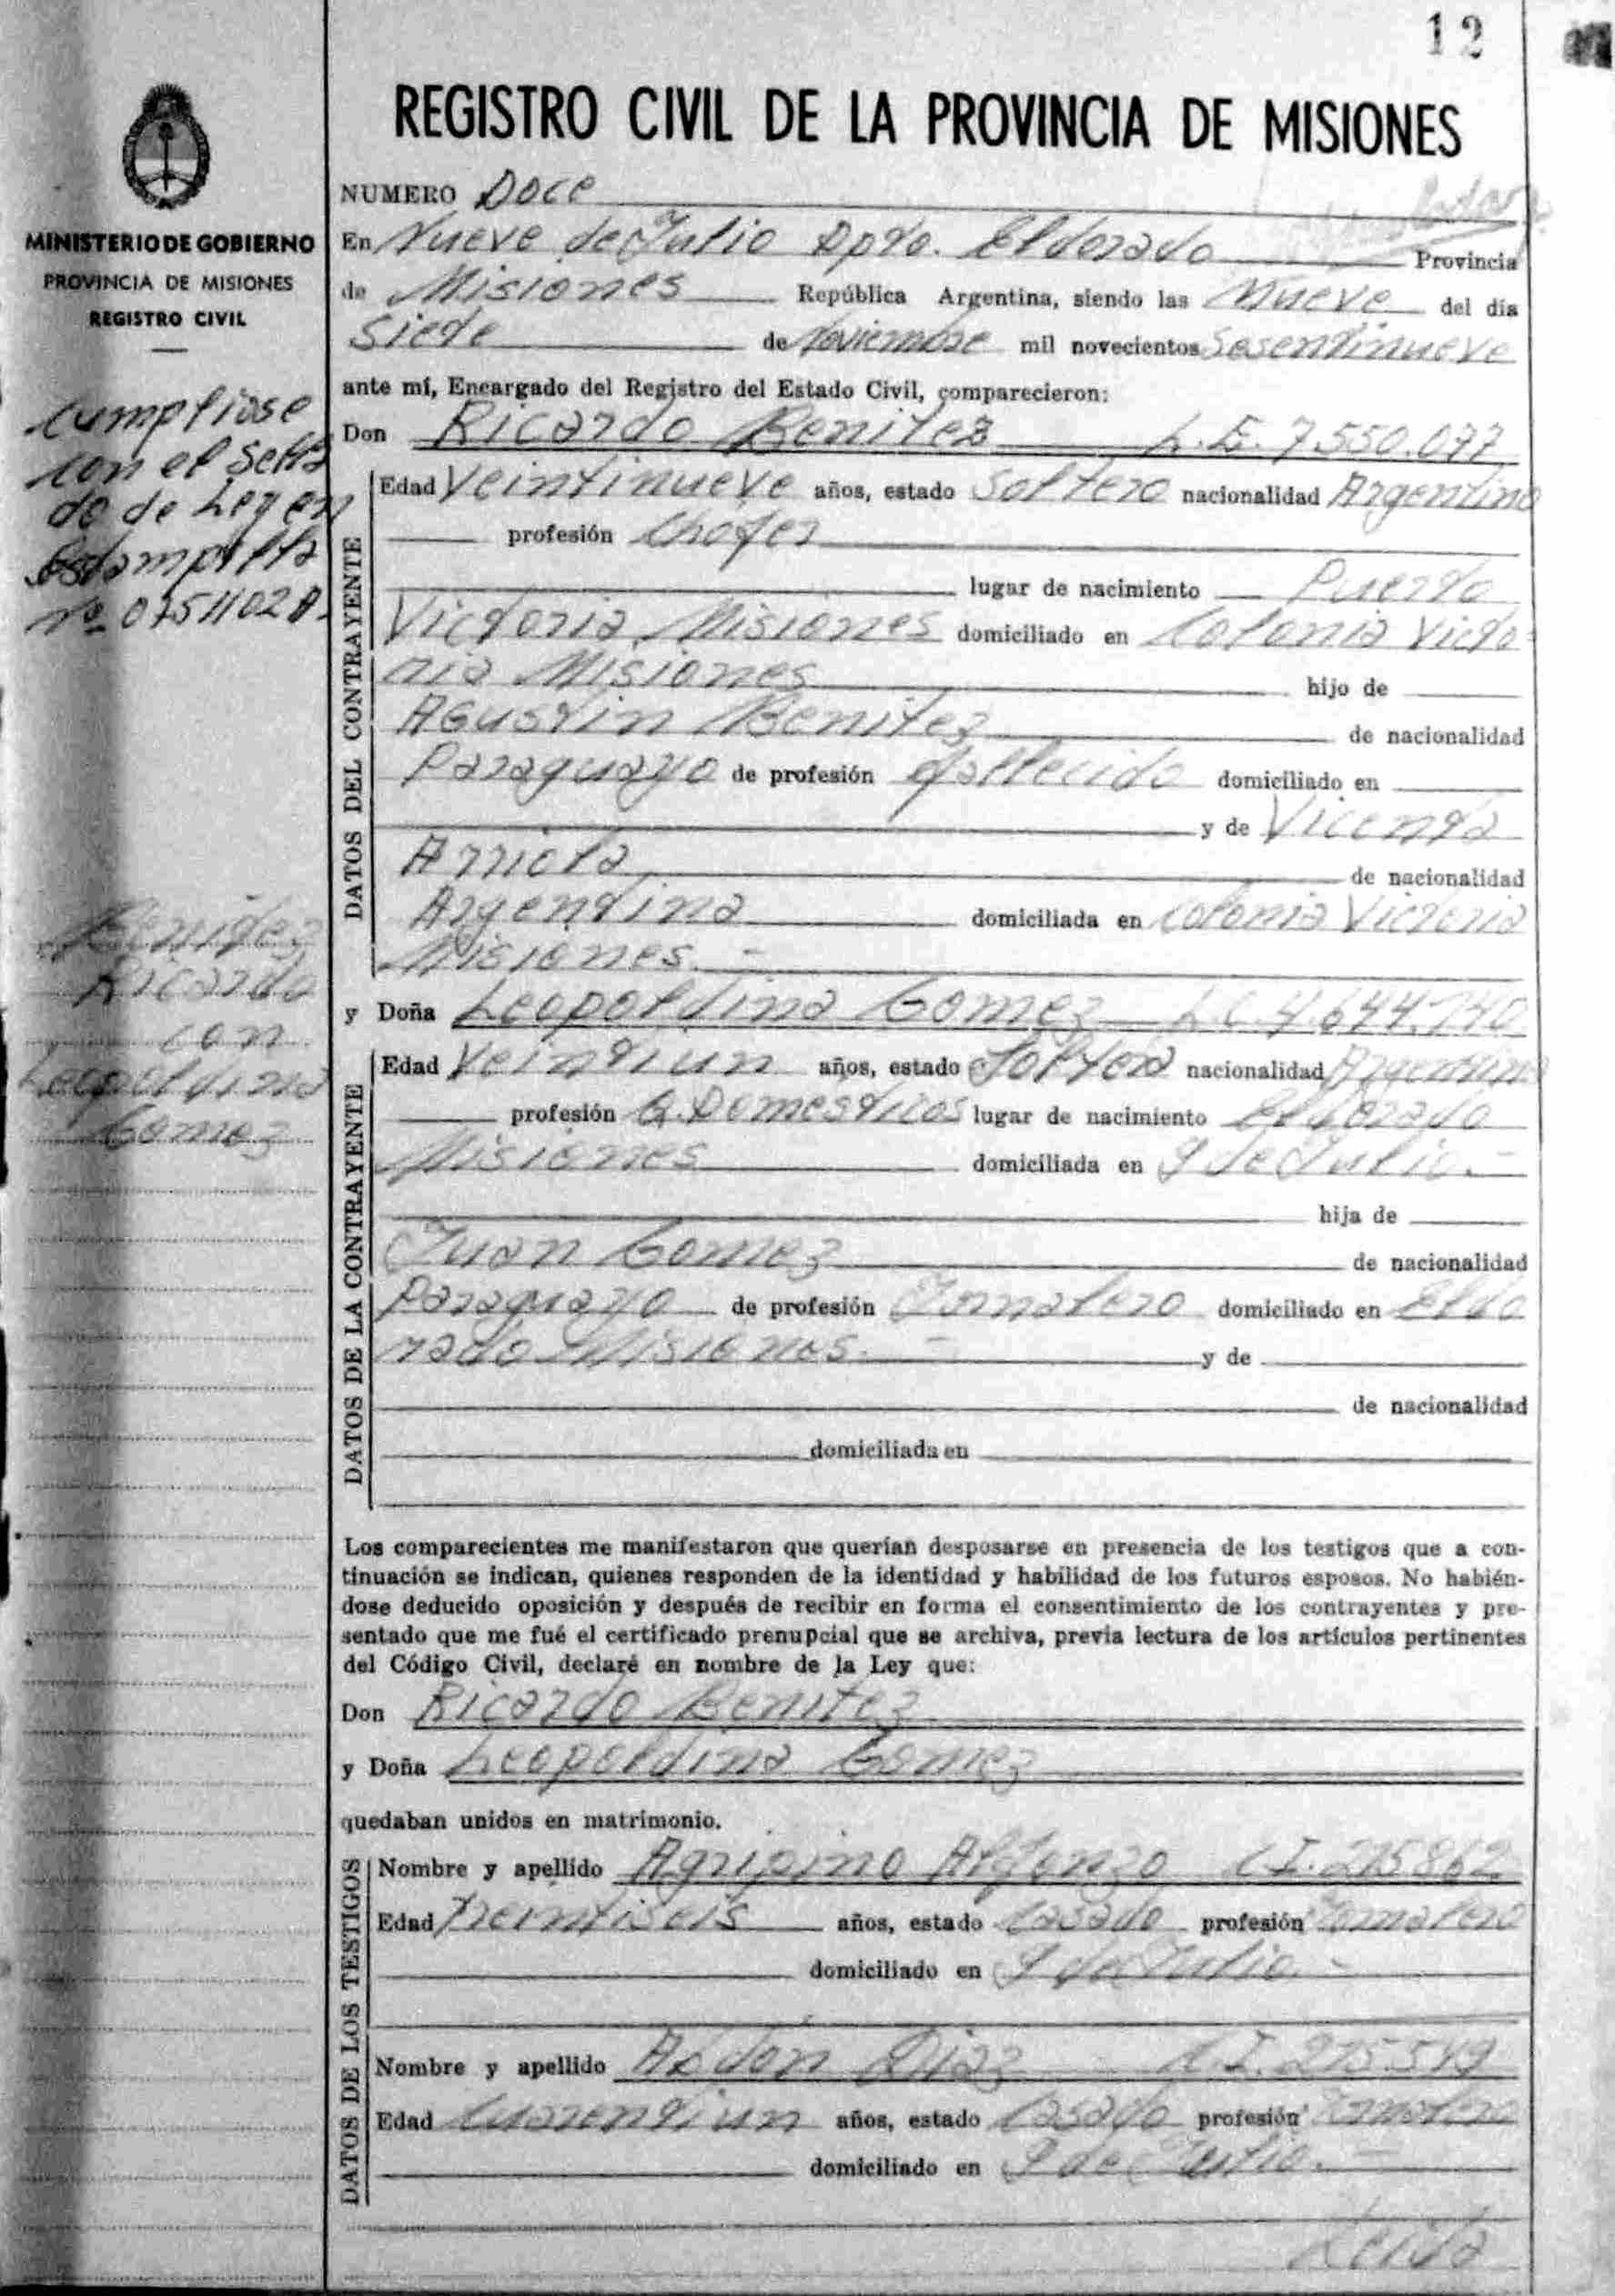 12
REGISTRO CIVIL DE LA PROVINCIA DE MISIONES
MINISTERIO DE GOBIERNO
PROVINCIA DE MISIONES
REGISTRO CIVIL
cumpliose
con el Sella
do de Ley en
Estampilla
Nº 0751102
Benitez
Ricardo
con
Leopoldina
Gomez
NUMERO Doce
En Nueve de Julio Dpto. Eldorado Provincia
de Misiones República Argentina, siendo las Nueve del día
Siete de Noviembre mil novecientos Sesentinueve
ante mí, Encargado del Registro del Estado Civil, comparecieron:
Don Ricardo Benitez L.E. 7.550.077
DATOS DEL CONTRAYENTE
Edad Veintinueve años, estado Soltero nacionalidad Argentino
profesión Chofer
lugar de nacimiento Puerto
Victoria Misiones domiciliado en Colonia Victo
ria Misiones hijo de
Agustin Benitez de nacionalidad
Paraguayo de profesión fallecido domiciliado en
y de Vicenta
Arriola de nacionalidad
Argentina domiciliada en Colonia Victoria
Misiones.-
y Doña Leopoldina Gomez L.C. 4.644.740
DATOS DE LA CONTRAYENTE
Edad Veintiun años, estado Soltera nacionalidad Argentina
profesión Q. Domesticos lugar de nacimiento Eldorado
Misiones domiciliada en 9 de Julio.-
hija de
Juan Gomez de nacionalidad
Paraguayo de profesión Jornalero domiciliado en Eldo
rado Misiones.- y de
de nacionalidad
domiciliada en
Los comparecientes me manifestaron que querían desposarse en presencia de los testigos que a con-
tinuación se indican, quienes responden de la identidad y habilidad de los futuros esposos. No habién-
dose deducido oposición y después de recibir en forma el consentimiento de los contrayentes y pre-
sentado que me fué el certificado prenupcial que se archiva, previa lectura de los artículos pertinentes
del Código Civil, declaré en nombre de la Ley que:
Don Ricardo Benitez
y Doña Leopoldina Gomez
quedaban unidos en matrimonio.
DATOS DE LOS TESTIGOS
Nombre y apellido Agripino Alfonzo C.I. 215862
Edad Treintiseis años, estado Casado profesión Jornalero
domiciliado en 9 de Julio.-
Nombre y apellido Abdón Diaz C.I. 215.549
Edad Cuarentiun años, estado Casado profesión Jornalero
domiciliado en 9 de Julio.-
Leida